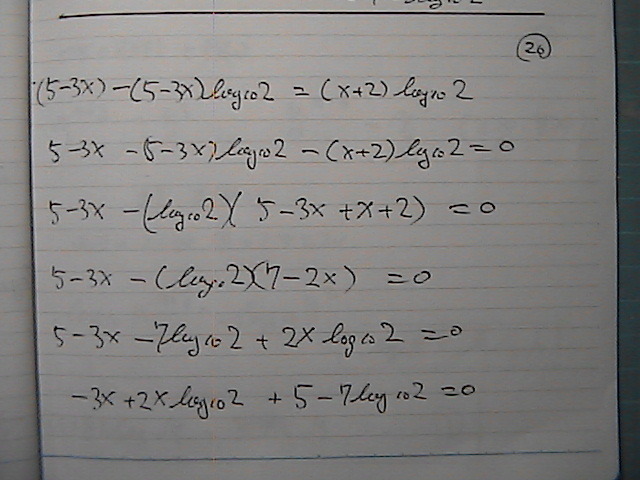 26
(5-3x) - (5-3x) log₁₀2 = (x+2) log₁₀2
5-3x - (5-3x) log₁₀2 - (x+2) log₁₀2 = 0
5-3x - (log₁₀2)( 5-3x + x + 2) = 0
5-3x - (log₁₀2)(7-2x) = 0
5-3x - 7log₁₀2 + 2x log₁₀2 = 0
-3x + 2x log₁₀2 + 5 - 7log₁₀2 = 0